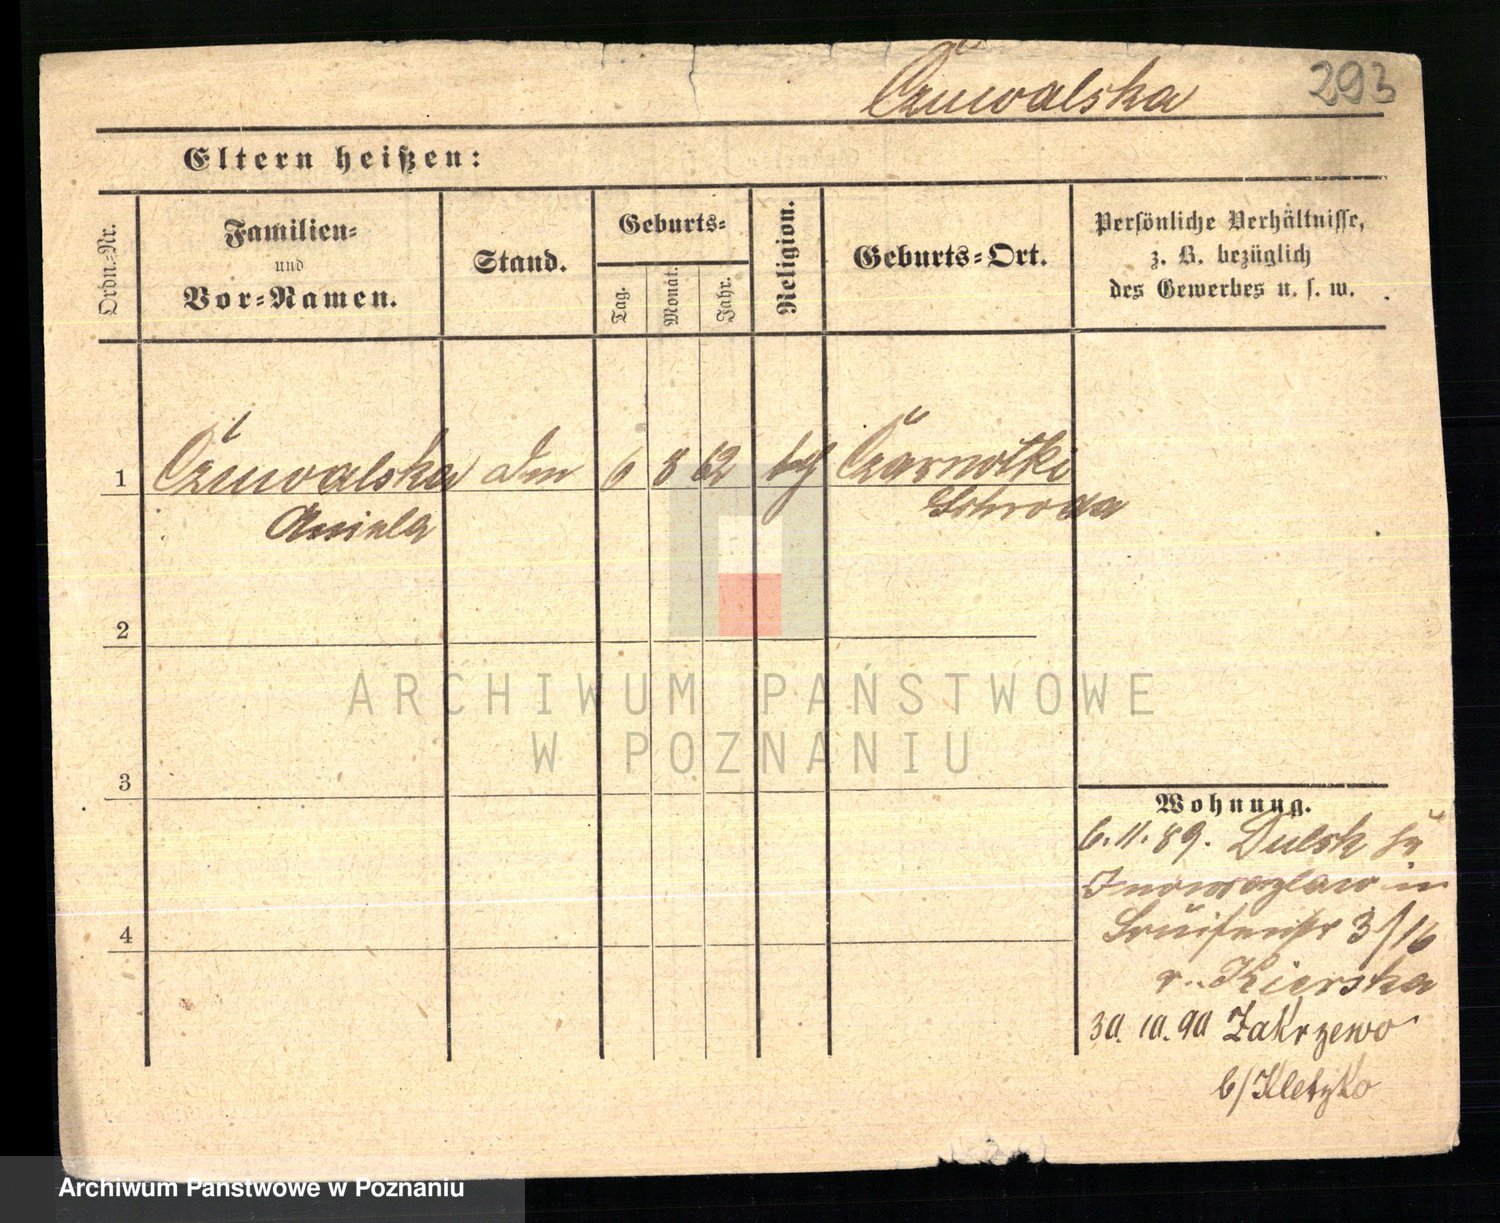 Czuwalska 293
Eltern heißen:
Ordn.-Nr.
Familien-
und
Vor-Namen.
Stand.
Geburts-
Tag.
Monat.
Jahr.
Religion.
Geburts-Ort.
Persönliche Verhältnisse,
z. B. bezüglich
des Gewerbes u. s. w.
1 Czuwalska 6 8 62 Czarnotki
Aniela Schroda
2
3
4
Wohnung.
6.11.89. Dulsk
Inowrazlaw in
3/16
Kierska
30. 10. 90 Zakrzewo
b/Kletzko
ARCHIWUM PAŃSTWOWE
W POZNANIU
Archiwum Państwowe w Poznaniu